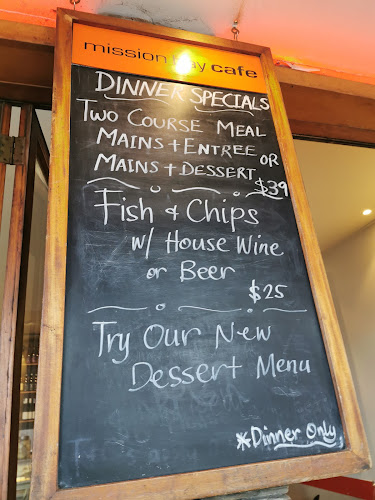 mission bay cafe
DINNER SPECIALS
TWO COURSE MEAL
MAINS + ENTREE
OR
MAINS + DESSERT
$39
Fish & Chips
w/ House Wine
or Beer
$25
Try Our New
Dessert Menu
*Dinner Only